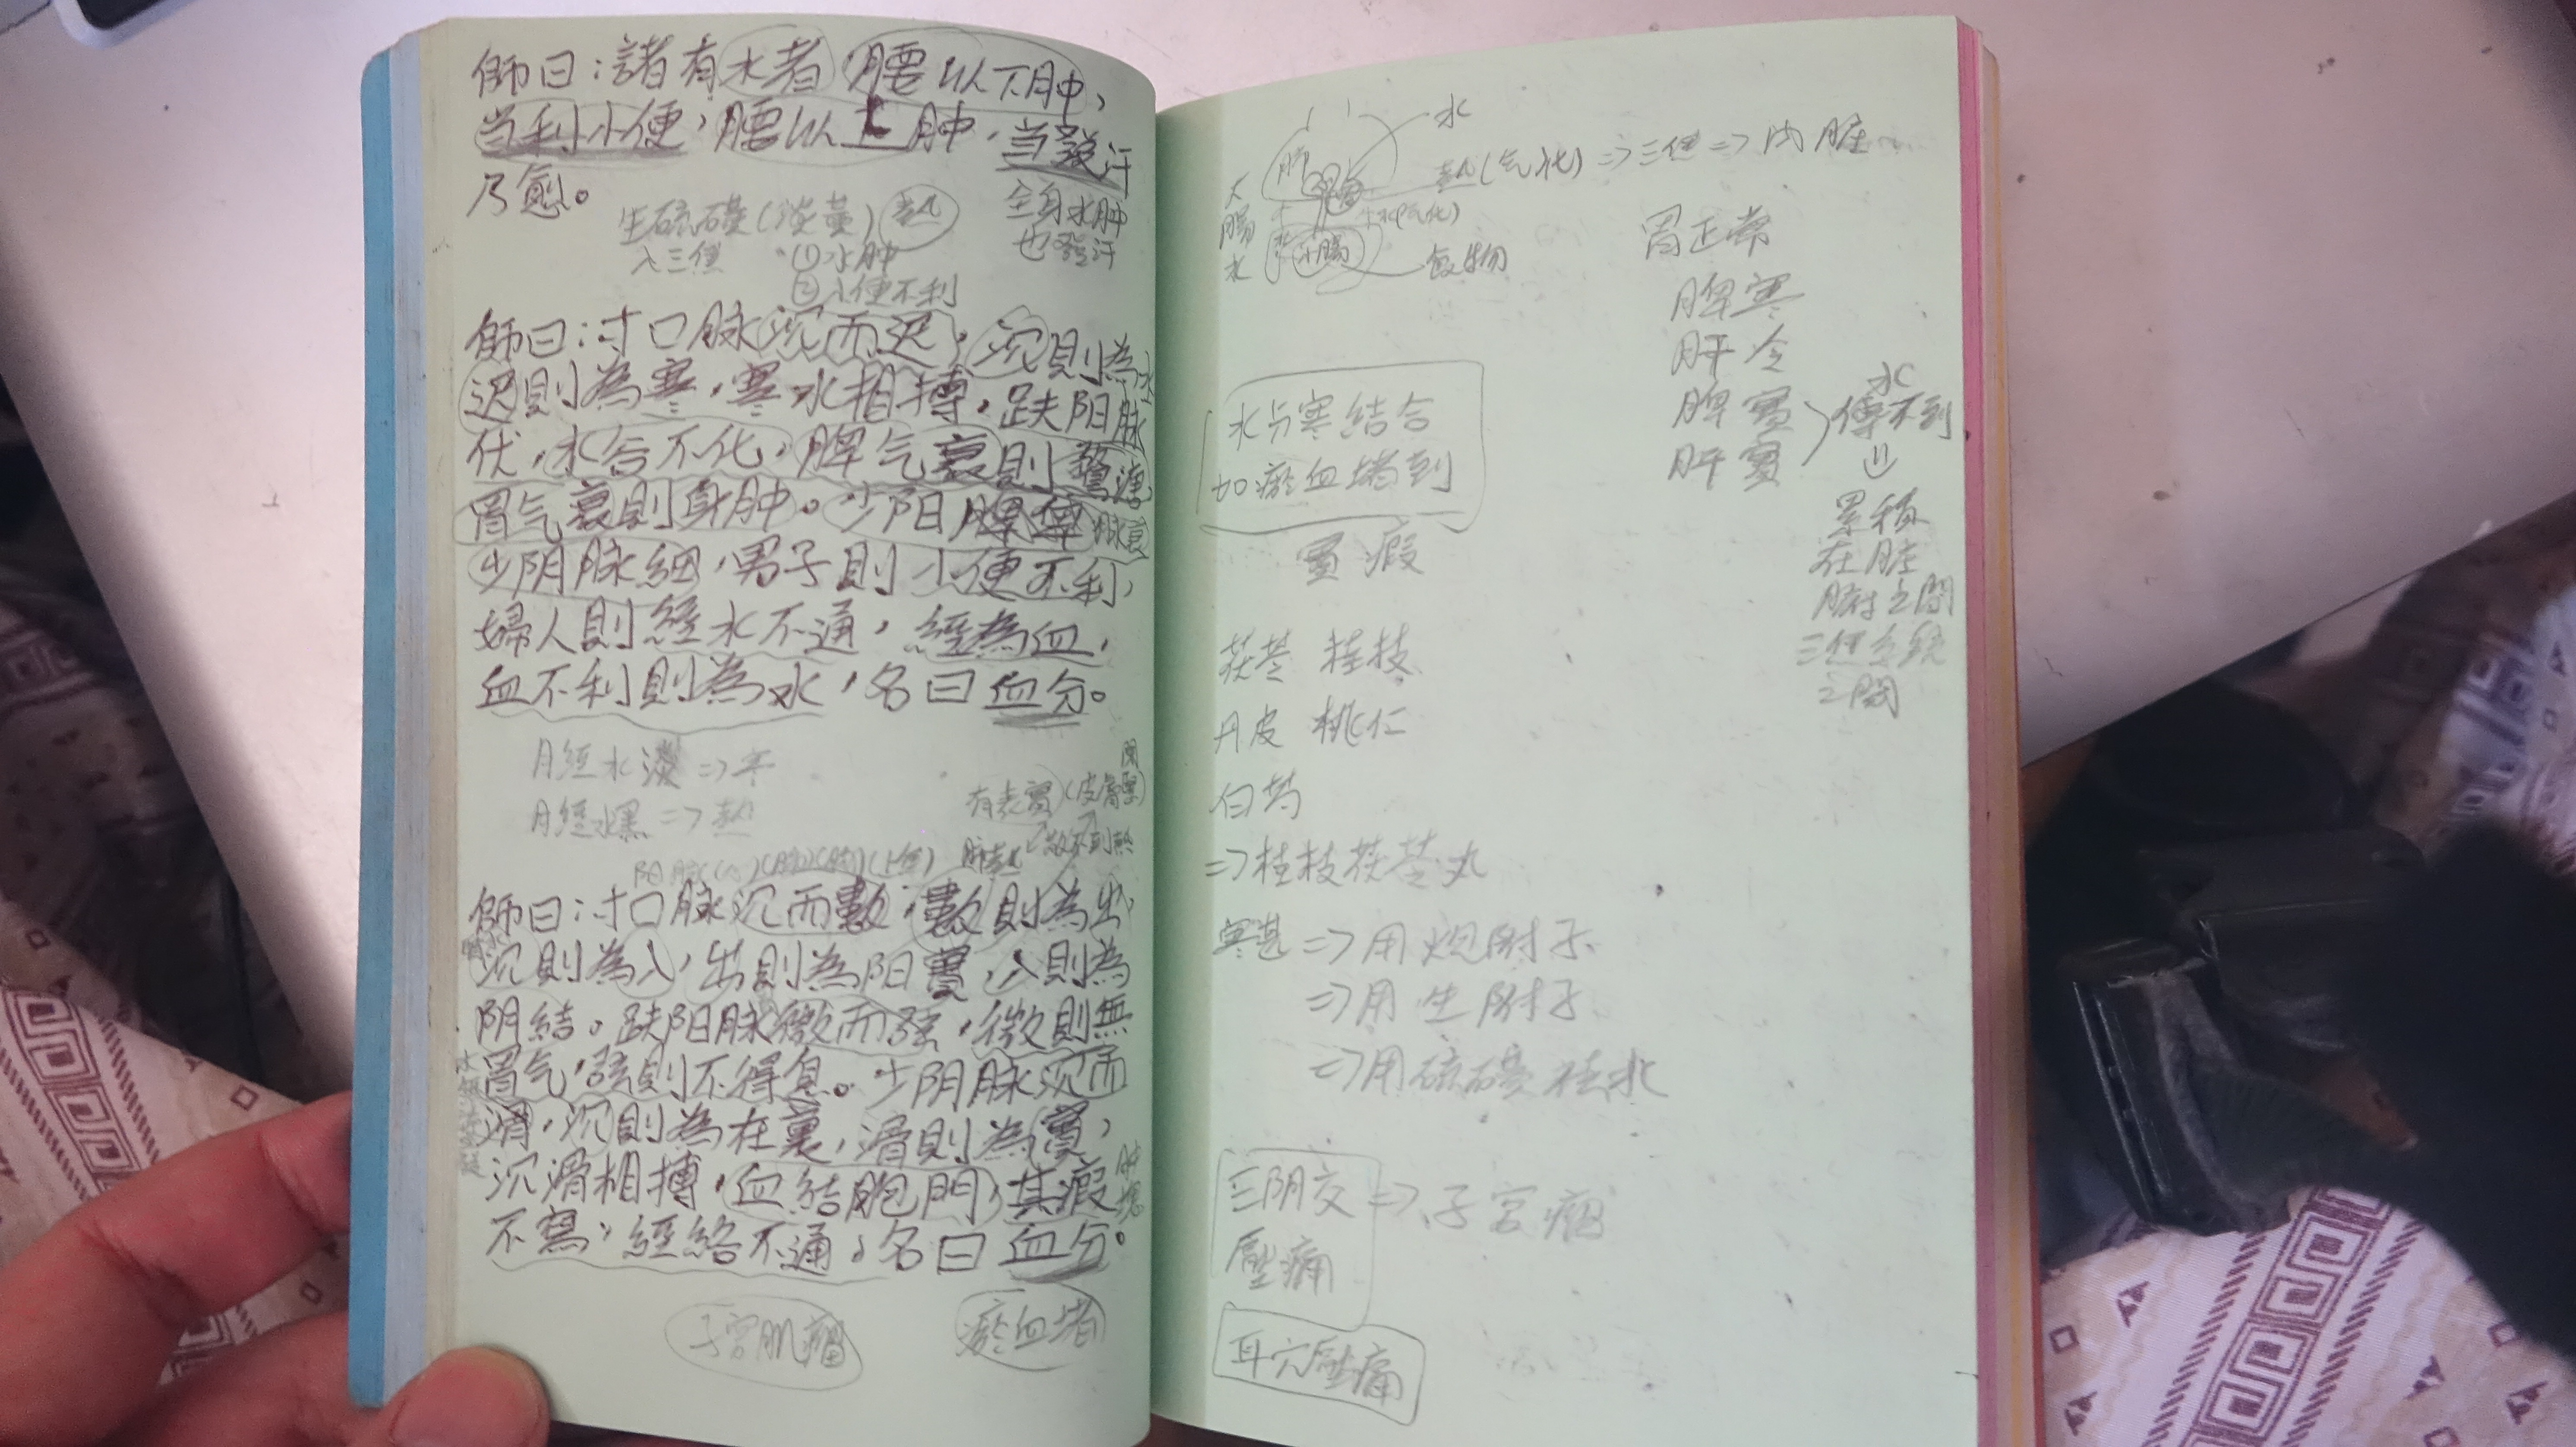 師曰：諸有水者，腰以下肿，
当利小便，腰以上肿，当發汗
乃愈。
生硫磺(淡黃) 熱
入三焦
①水肿
②小便不利
全身水肿
也發汗
師曰：寸口脉沉而迟，沉則為水
迟則為寒，寒水相摶，趺阳脉
伏，水谷不化，脾气衰則鶩溏
胃气衰則身肿。少阳脾
少阴脉細，男子則小便不利，
婦人則經水不通，經為血，
血不利則為水，名曰血分。
月經水淡=>寒
月經水黑=>熱
有表實(皮膚
肺熱
師曰：寸口脉沉而數，數則為出
沉則為入，出則為阳實，入則為
阴結。趺阳脉微而弦，微則無
胃气，弦則不得息。少阴脉沉而
滑，沉則為在裏，滑則為實，
沉滑相摶，血結胞門，其瘕
不寫，經絡不通，名曰血分。
肿塊
子宮肌瘤
瘀血堵
水
熱(气化)=>三焦=>内臟
大
腸
水
小腸
食物
胃正常
脾寒
肝冷
脾實
肝實
水
傳不到
累積
在脏
腑之間
三焦系統
之間
水与寒結合
如瘀血堵到
實瘕
茯苓 桂枝
丹皮 桃仁
白芍
=>桂枝茯苓丸
寒甚=>用炮附子
=>用生附子
=>用硫磺
三阴交
壓痛
=>子宮瘤
耳穴壓痛